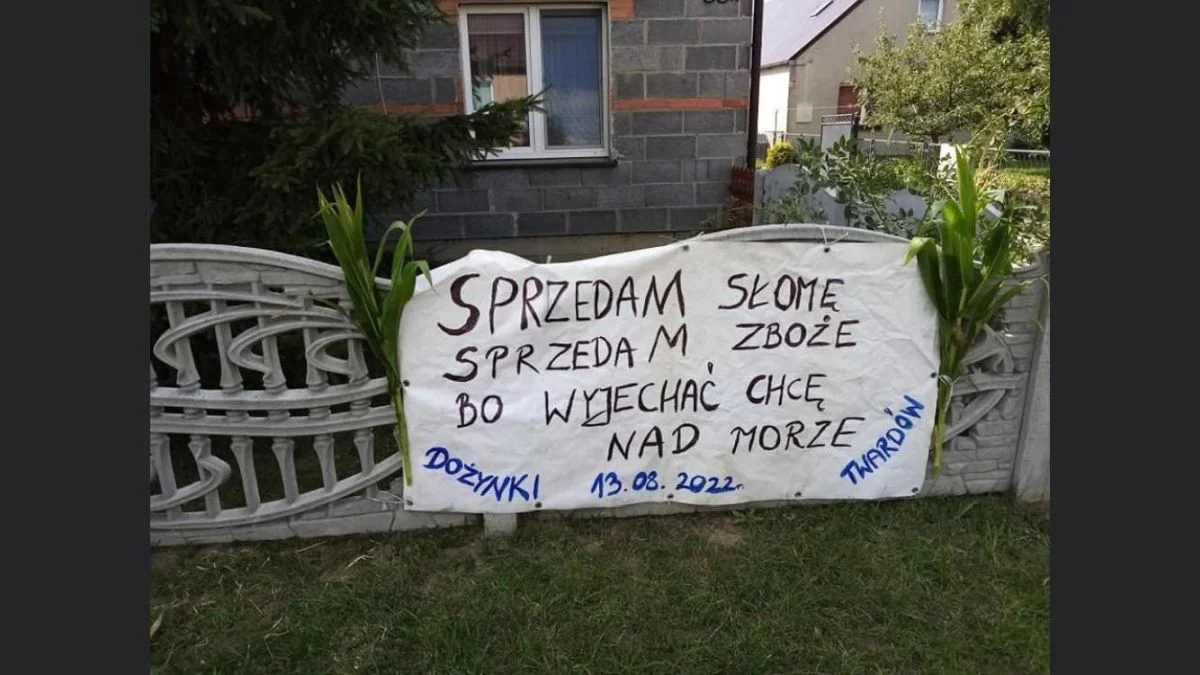 SPRZEDAM SŁOMĘ
SPRZEDAM ZBOŻE
BO WYJECHAĆ CHCĘ
NAD MORZE
DOŻYNKI 13.08.2022r. TWARDÓW